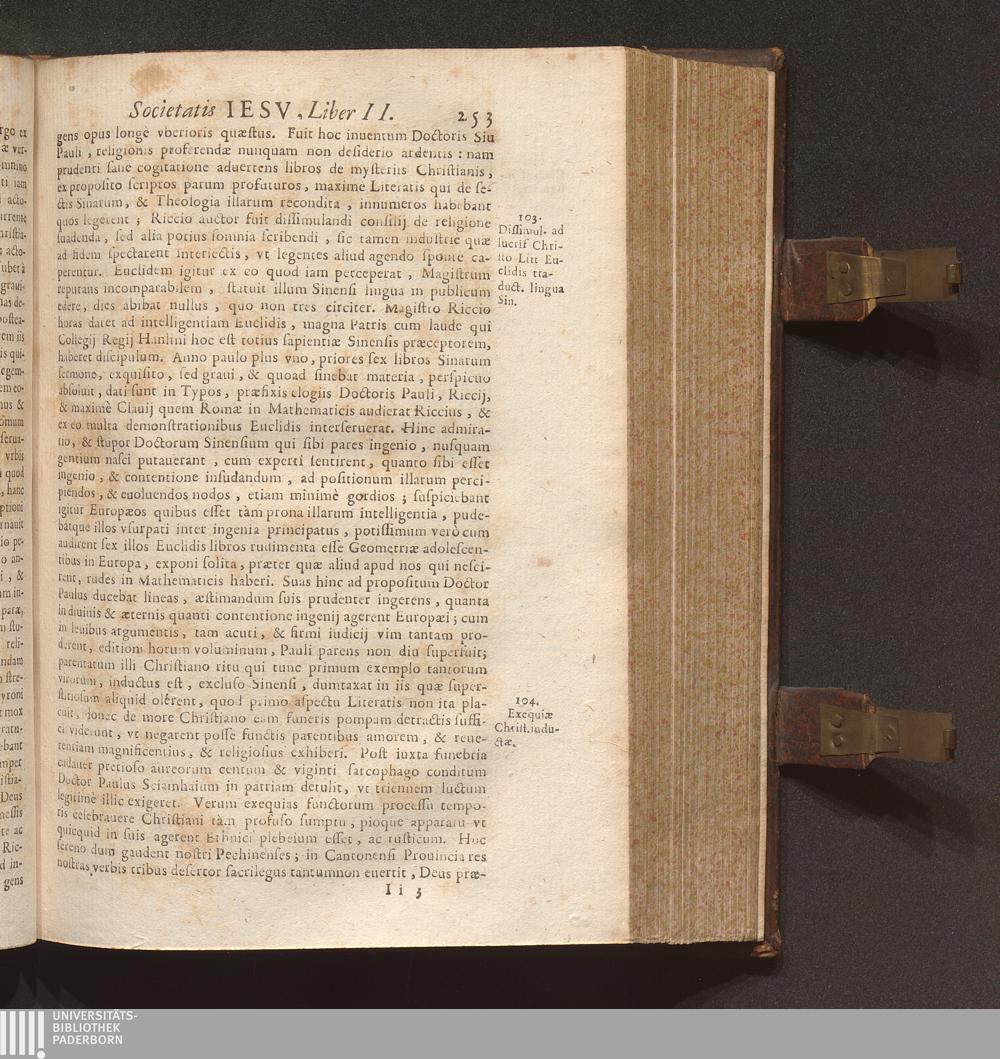 Societatis IESV, Liber II. 253
gens opus longè vberioris quæstus. Fuit hoc inuentum Doctoris Siu
Pauli, religionis proferendæ nunquam non desiderio ardentis: nam
prudenti sane cogitatione aduertens libros de mysteriis Christianis,
ex proposito scriptos parum profuturos, maximè Literatis qui de se-
ctis Sinarum, & Theologia illarum recondita, innumeros habebant
quos legerent; Riccio auctor fuit dissimulandi consilij de religione
suadenda, sed alia potius somnia scribendi, sic tamen industrie quæ
ad fidem spectarent interiectis, vt legentes aliud agendo sponte ca-
perentur. Euclidem igitur ex eo quod iam perceperat, Magistrum
reputans incomparabilem, statuit illum Sinensi lingua in publicum
edere, dies abibat nullus, quo non tres circiter. Magistro Riccio
horas daret ad intelligentiam Euclidis, magna Patris cum laude qui
Collegij Regij Hanlini hoc est totius sapientiæ Sinensis præceptorem,
haberet discipulum. Anno paulo plus vno, priores sex libros Sinarum
sermone, exquisito, sed graui, & quoad sinebat materia, perspicuo
absoluit, dati sunt in Typos, præfixis elogiis Doctoris Pauli, Riccij,
& maximè Clauij quem Romæ in Mathematicis audierat Riccius, &
ex eo multa demonstrationibus Euclidis interseruerat. Hinc admira-
tio, & stupor Doctorum Sinensium qui sibi pares ingenio, nusquam
gentium nasci putauerant, cum experti sentirent, quanto sibi esset
ingenio, & contentione insudandum, ad positionum illarum perci-
piendos, & euoluendos nodos, etiam minimè gordios; suspiciebant
igitur Europæos quibus esset tàm prona illarum intelligentia, pude-
batque illos vsurpati inter ingenia principatus, potissimum verò cum
audirent sex illos Euclidis libros rudimenta esse Geometriæ adolescen-
tibus in Europa, exponi solita, præter quæ aliud apud nos qui nesci-
rent, rudes in Mathematicis haberi. Suas hinc ad propositum Doctor
Paulus ducebat lineas, æstimandum suis prudenter ingerens, quanta
in diuinis & æternis quanti contentione ingenij agerent Europæi; cum
in leuibus argumentis, tam acuti, & firmi iudicij vim tantam pro-
derent, editioni horum voluminum, Pauli parens non diu superfuit;
parentatum illi Christiano ritu qui tunc primum exemplo tantorum
virorum, inductus est, excluso Sinensi, dumtaxat in iis quæ super-
stitiosum aliquid olerent, quod primo aspectu Literatis non ita pla-
cuit, donec de more Christiano eam funeris pompam detractis suffi-
ci viderunt, vt negarent posse functis parentibus amorem, & reue-
rentiam magnificentius, & religiosius exhiberi. Post iuxta funebria
cadauer pretioso aureorum centum & viginti sarcophago conditum
Doctor Paulus Sciamhaium in patriam detulit, vt triennem luctum
legitimè illic exigeret. Verum exequias functorum processu tempo-
ris celebrauere Christiani tàm profuso sumptu, pioque apparatu vt
quicquid in suis agerent Ethnici plebeium esset, ac rusticum. Hoc
sereno dum gaudent nostri Pechinenses; in Cantonensi Prouincia res
nostras verbis tribus desertor sacrilegus tantumnon euertit, Deus præ-
I i 3
103.
Dissimul. ad
lucrif Chri-
sto Litt Eu-
clidis tra-
duct. lingua
Sin.
104.
Exequiæ
Christ. indu-
ctæ.
rgo ex
æ ver-
mnino
ti iam
acto-
hristia-
acto-
graui-
nas de-
ostea-
em iis
is qui-
egem-
em eo-
nus &
omum
serua-
vrbis
quod
, hanc
ptioni
rnauit
io pe-
o an-
i, &
um in-
paræ,
m stu-
reli-
ndam
n stre-
yroni
t mox
ratu-
ebant
mper
istia-
Deus
nessis
te ac
Ric-
d in-
gens
UNIVERSITÄTS-
BIBLIOTHEK
PADERBORN